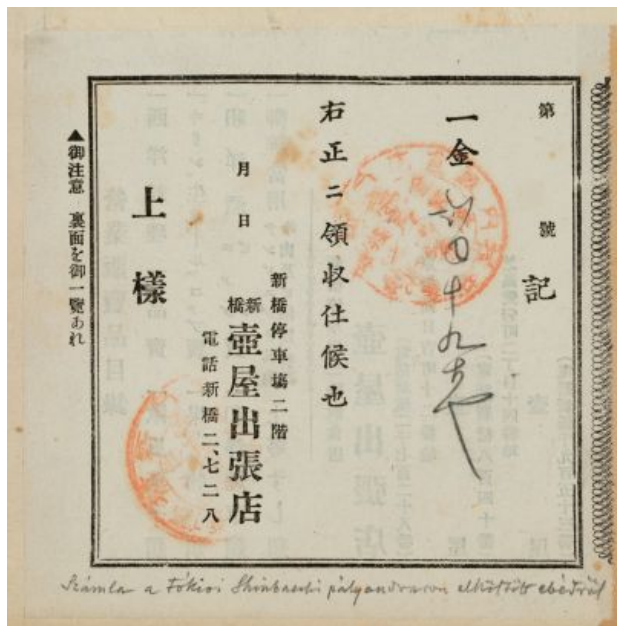 第　號
記
一金
右正ニ領収仕候也
月　日
新橋停車塲二階
新橋 壺屋出張店
電話新橋二、七二八
上様
▲御注意　裏面を御一覧あれ
Számla a Tókioi Shinbashi pályaudvaron elköltött ebédről